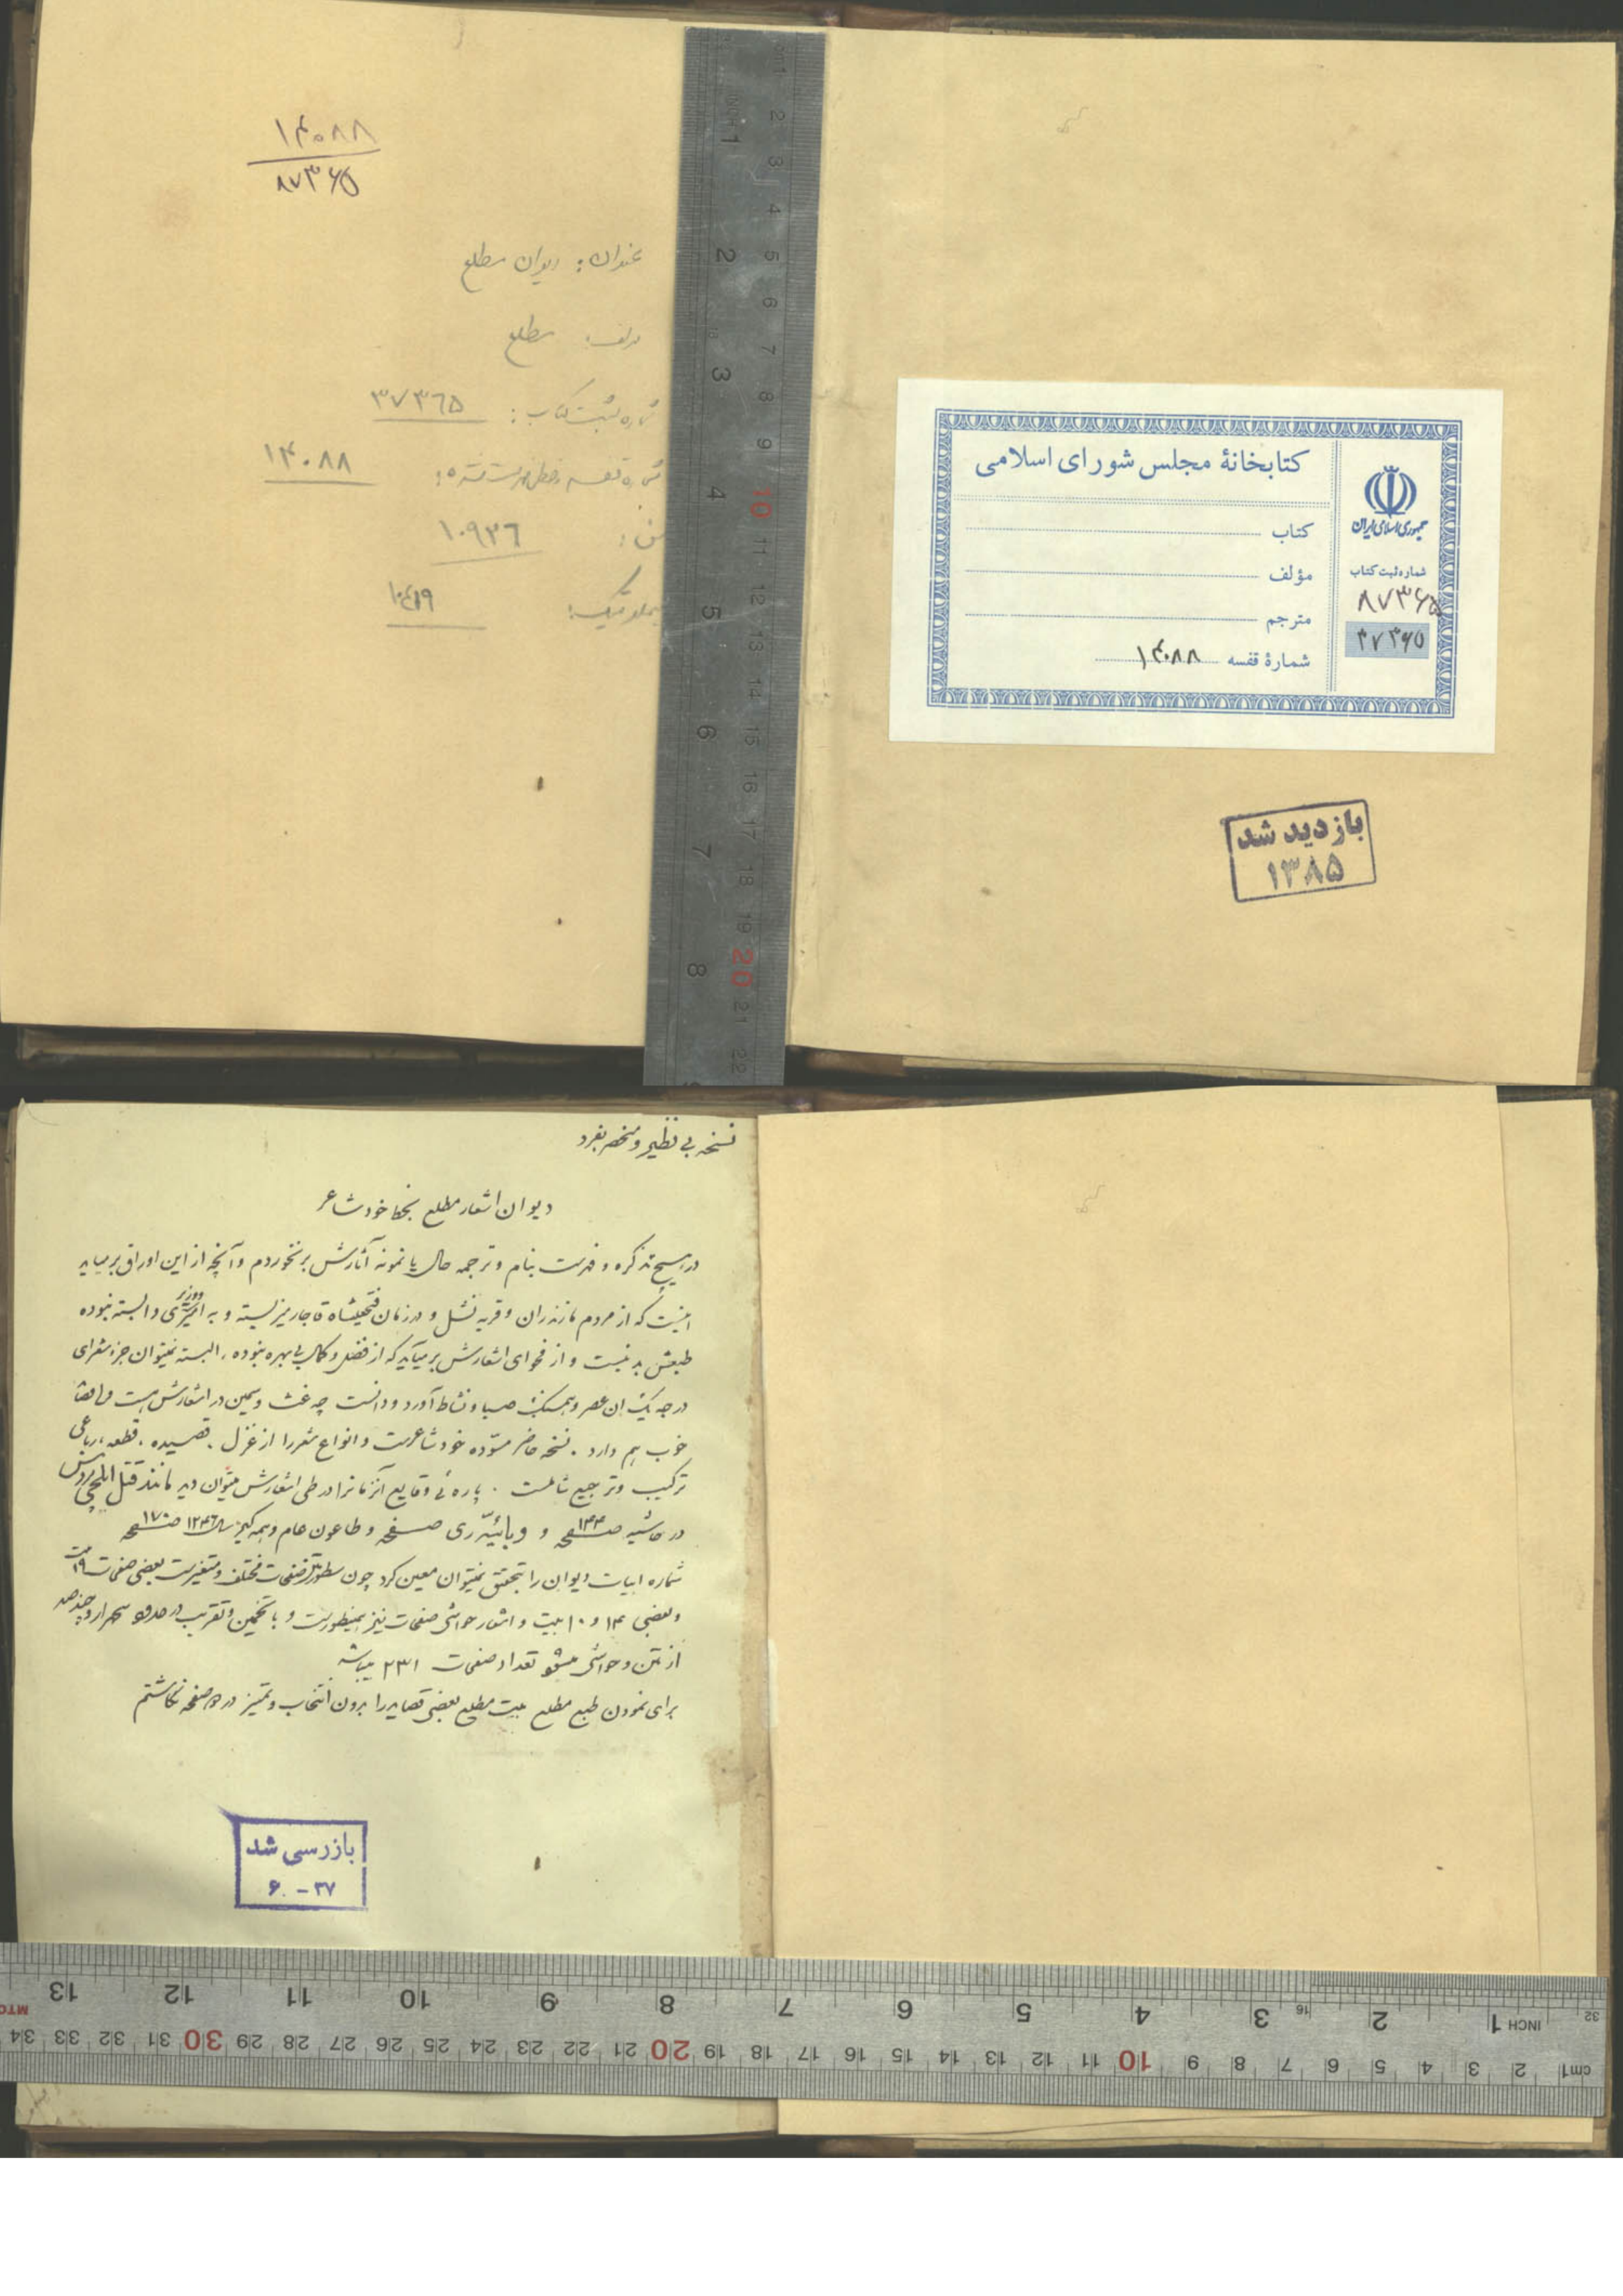 کتابخانهٔ مجلس شورای اسلامی
کتاب
مؤلف
مترجم
شمارهٔ قفسه ۱۴۰۸۸
جمهوری اسلامی ایران
شماره ثبت کتاب
۸۷۳۶۵
۳۷۳۶۵
بازدید شد
۱۳۸۵
۱۴۰۸۸
۸۷۳۶۵
عنوان: دیوان مطلع
مؤلف: مطلع
شماره ثبت کتاب: ۳۷۳۶۵
شماره قفسه خطی فهرست نشده: ۱۴۰۸۸
۱۰۹۳۶
نسخه بی نظیر و منحصر بفرد
دیوان اشعار مطلع بخط خود شاعر
در هیچ تذکره و فهرست بنام و ترجمه حال یا نمونه آثارش برنخوردم و آنچه از این اوراق برمیاید
اینست که از مردم مازندران و قریه نشل و در زمان فتحعلیشاه قاجار میزیسته و به امیری و وزیری وابسته نبوده
طبعش بد نیست و از فحوای اشعارش برمیآید که از فضل و کمال بی بهره نبوده، البته نمیتوان جزء شعرای
درجه یک آن عصر و همسنگ صبا و نشاط آورد و دانست چه غث و سمین در اشعارش هست
خوب هم دارد. نسخه حاضر مسوّده خود شاعرست و انواع شعر را از غزل. قصیده. قطعه، رباعی
ترکیب و ترجیع شاملست. پاره ئی وقایع آنزمانرا در طی اشعارش میتوان دید مانند قتل ایلچی روس
در حاشیه صفحه ۱۴۴ و وبائیّه ری صفحه و طاعون عام و همه گیر سال ۱۲۴۶ صفحه ۱۷۰
شماره ابیات دیوان را بتحقیق نمیتوان معین کرد چون سطور صفحات مختلف و متغیرست بعضی صفحات ۱۹
و بعضی ۱۴ و ۱۰ بیت و اشعار حواشی صفحات نیز بهمینطورست و با تخمین و تقریب در حدود سه هزار و چند صد
از متن و حواشی میشود تعداد صفحات ۲۳۱ میباشد
برای نمودن طبع مطلع بیت مطلع بعضی قصاید را بدون انتخاب و تمیز در صفحه نگاشتم
بازرسی شد
۶۰ - ۳۷